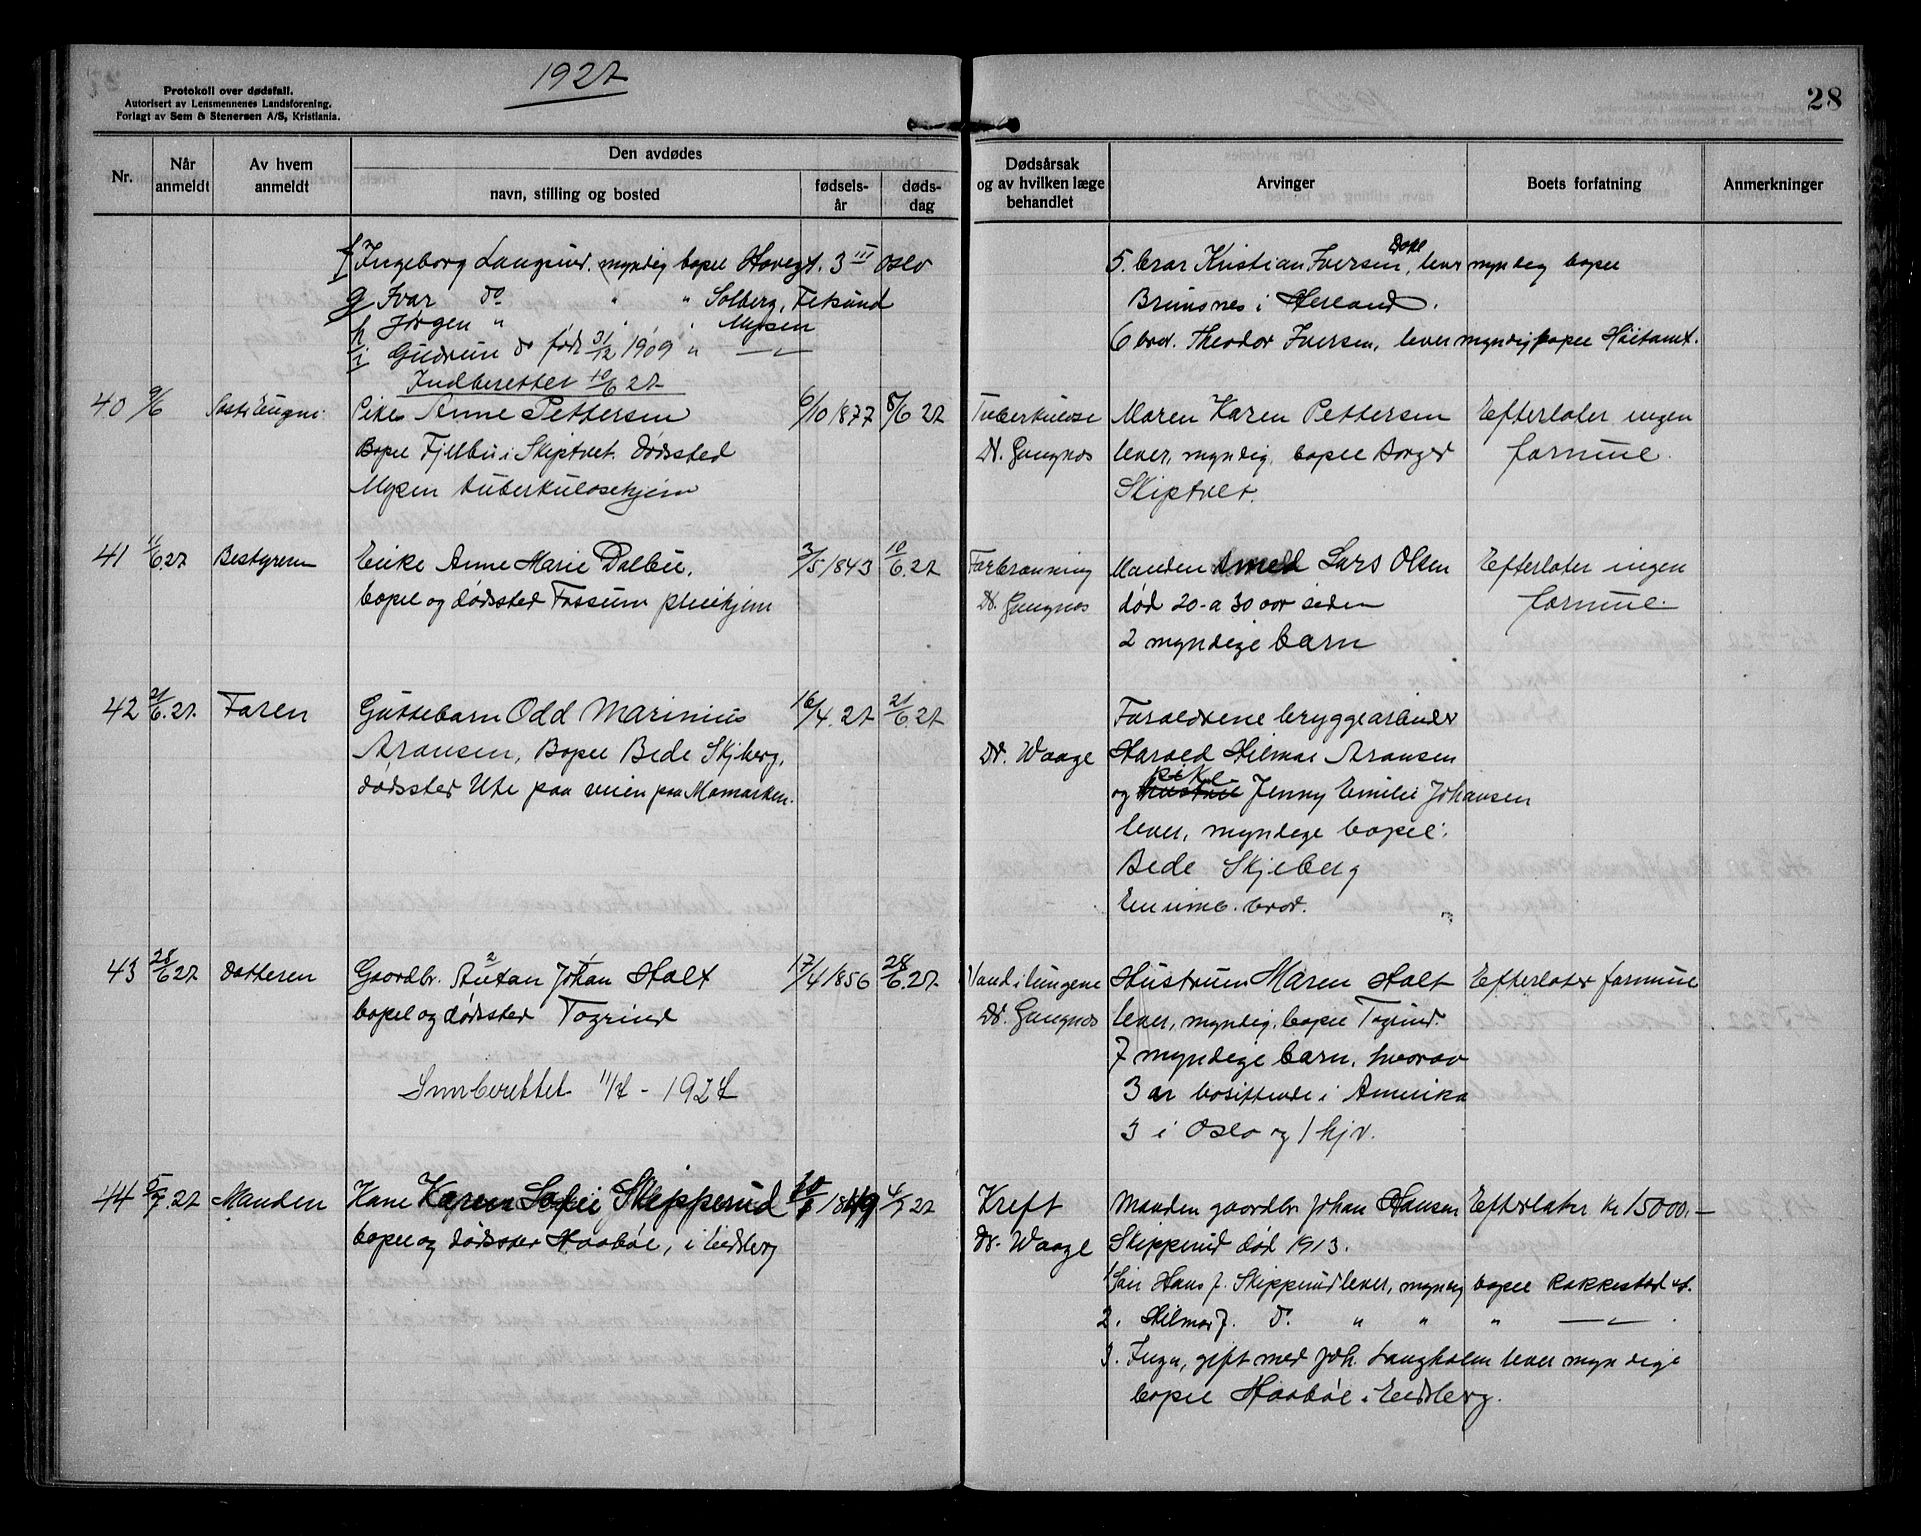 1927
28
Protokoll over dødsfall.
Autorisert av Lensmennenes Landsforening.
Forlagt av Sem & Stenersen A/S, Kristiania.
Nr.
Når anmeldt
Av hvem anmeldt
Den avdødes
navn, stilling og bosted
fødselsår
dødsdag
Dødsårsak og av hvilken læge behandlet
Arvinger
Boets forfatning
Anmerkninger
f Ingeborg Langsrud, myndig bopel 3 III Oslo
g Ivar do " " Solberg, Fetsund
h Jørgen " " " Mysen
i Gudrun do født 31/12 1909 " — " —
Indberettet 10/6 27
5. bror Kristian Iversen, lever myndig bopel
i Herland.
6 bror. Theodor Iversen, lever myndig bopel Høitomt.
40 9/6 Pike Anne Pettersen 6/10 1877 8/6 27
Bopel Fjellbu i Skiptvet. Dødssted
Mysen tuberkulosehjem
Tuberkulose
Dr. Gangnæs
Maren Karen Pettersen
lever, myndig, bopel
Skiptvet.
Efterlater ingen
formue.
41 11/6.27 Bestyreren Enke Anne Marie Dalbu, 3/5 1843 10/6.27
bopel og dødssted Fossum pleiehjem
Forbrænning
Dr. Gangnæs
Manden Lars Olsen
død 20 a 30 aar siden
2 myndige barn
Efterlater ingen
formue.
42 21/6.27. Faren Guttebarn Odd Marinius 16/4.27 21/6 27
Aronsen, Bopel Bede Skjberg,
dødssted Ute paa veien paa Momarken.
Dr. Waage
Forældrene bryggearbeider
Harald Hilmar Aronsen
og pike Jenny Emilie Johansen
lever, myndige bopel:
Bede Skjeberg
En umb. bror.
43 28/6 27 Datteren Gaardbr. Autan Johan Holt 17/4 1856 28/6.27.
bopel og dødssted Togrind
Innberettet 11/7 - 1927
Vand i lungene
Dr. Gangnæs
Hustruen Maren Holt
lever, myndig, bopel Togrind.
7 myndige barn, hvorav
3 er bosittende i Amerika
3 i Oslo og 1 hjv.
Efterlater formue
44 5/7.27 Manden Kone Karen Sofie Skipperud 4/7 27
bopel og dødssted Haabøl, i Eidsberg
Kreft
Dr. Waage
Manden gaardbr. Johan Hansen
Skipperud død 1913.
Efterlater kr 15000.—
1 Søn Hans J. Skipperud lever, myndig bopel Rakkestad
2. Hilmar J. do. " " " — " — .
3. Inga, gift med Joh. Langholm lever myndige
bopel Haabøl i Eidsberg.